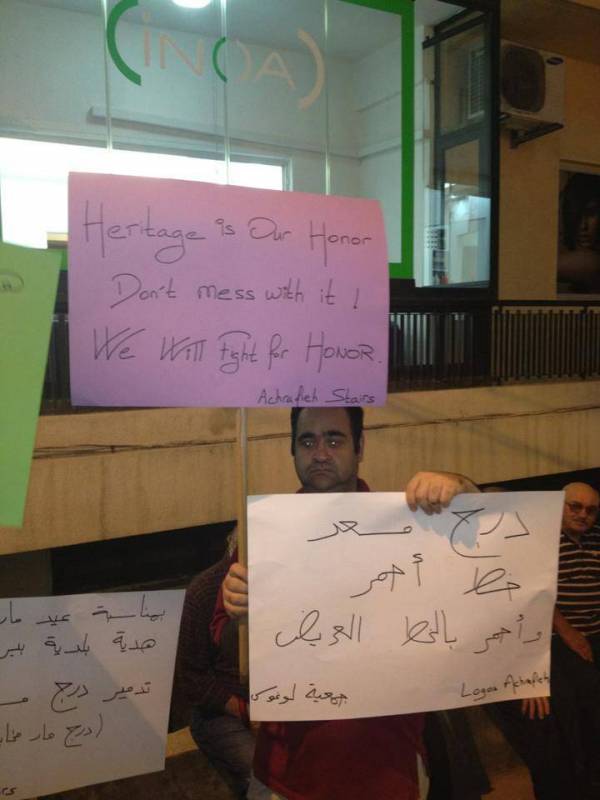 INOA
Heritage is Our Honor
Don't mess with it !
We Will Fight for HONOR.
Achrafieh Stairs
درج مسعد
خط أحمر
وأحمر بالخط العريض
جمعية لوغوس
Logos Achrafieh
بمناسبة عيد مار
هدية بلدية بير
تدمير درج
(درج مار
rs